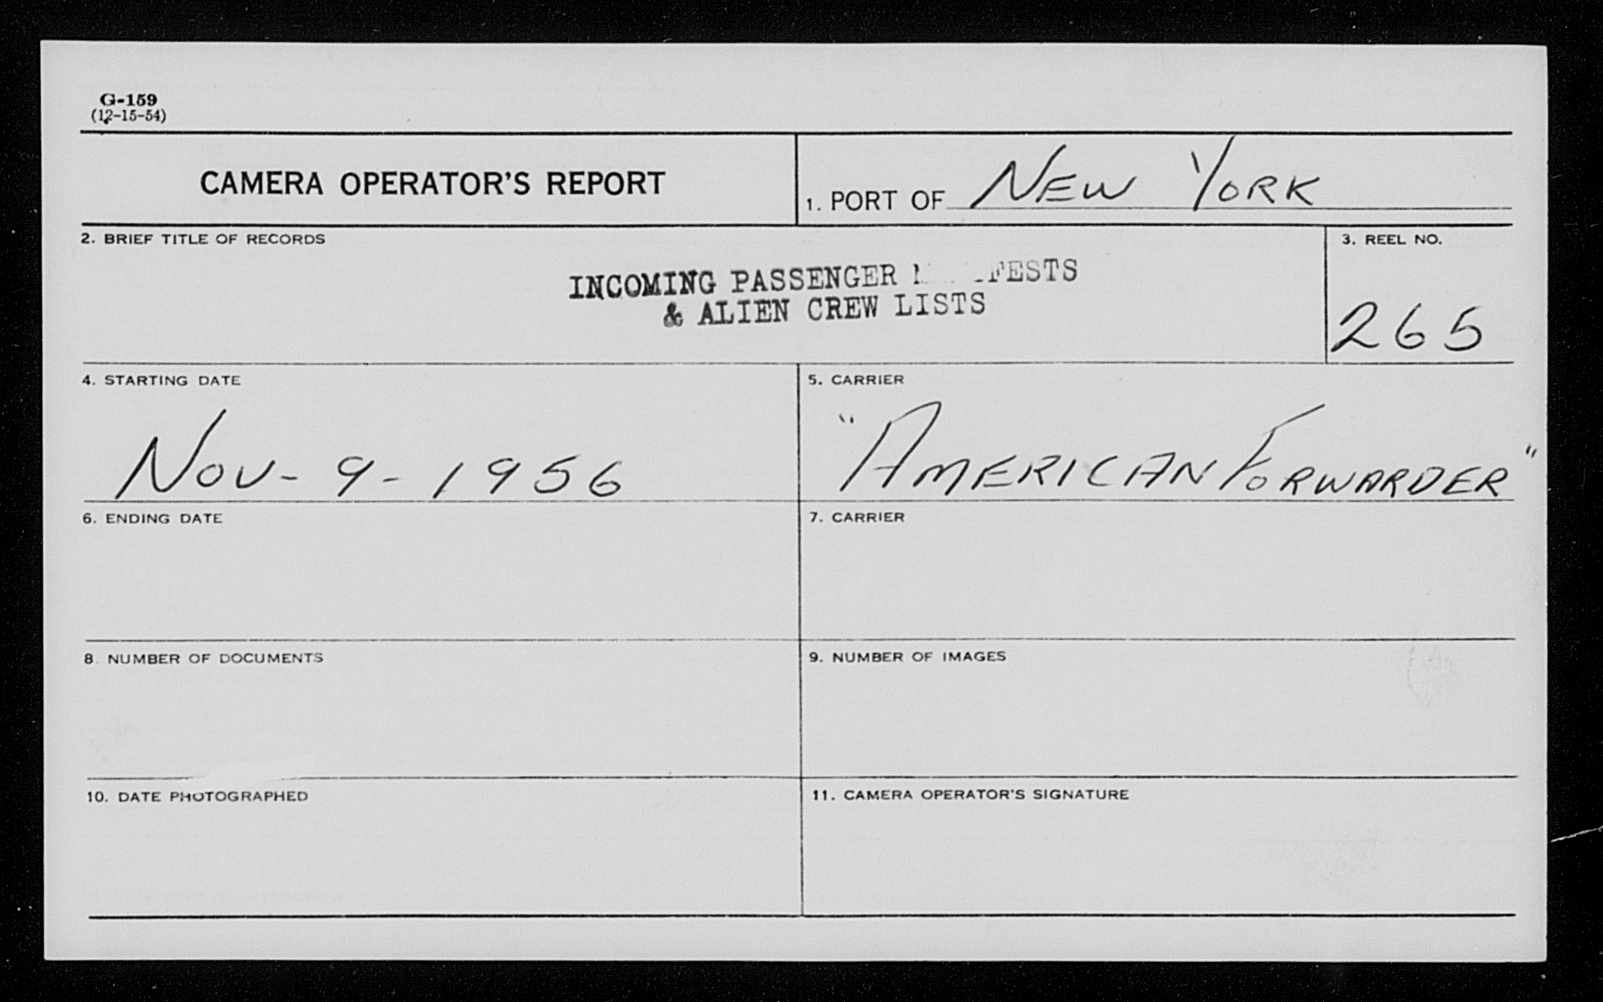 G-159
(12-15-54)
CAMERA OPERATOR'S REPORT
1. PORT OF NEW YORK
2. BRIEF TITLE OF RECORDS
INCOMING PASSENGER
& ALIEN CREW LISTS
3. REEL NO.
265
4. STARTING DATE
NOV-9-1956
5. CARRIER
"AMERICAN FORWARDER"
6. ENDING DATE
7. CARRIER
8. NUMBER OF DOCUMENTS
9. NUMBER OF IMAGES
10. DATE PHOTOGRAPHED
11. CAMERA OPERATOR'S SIGNATURE